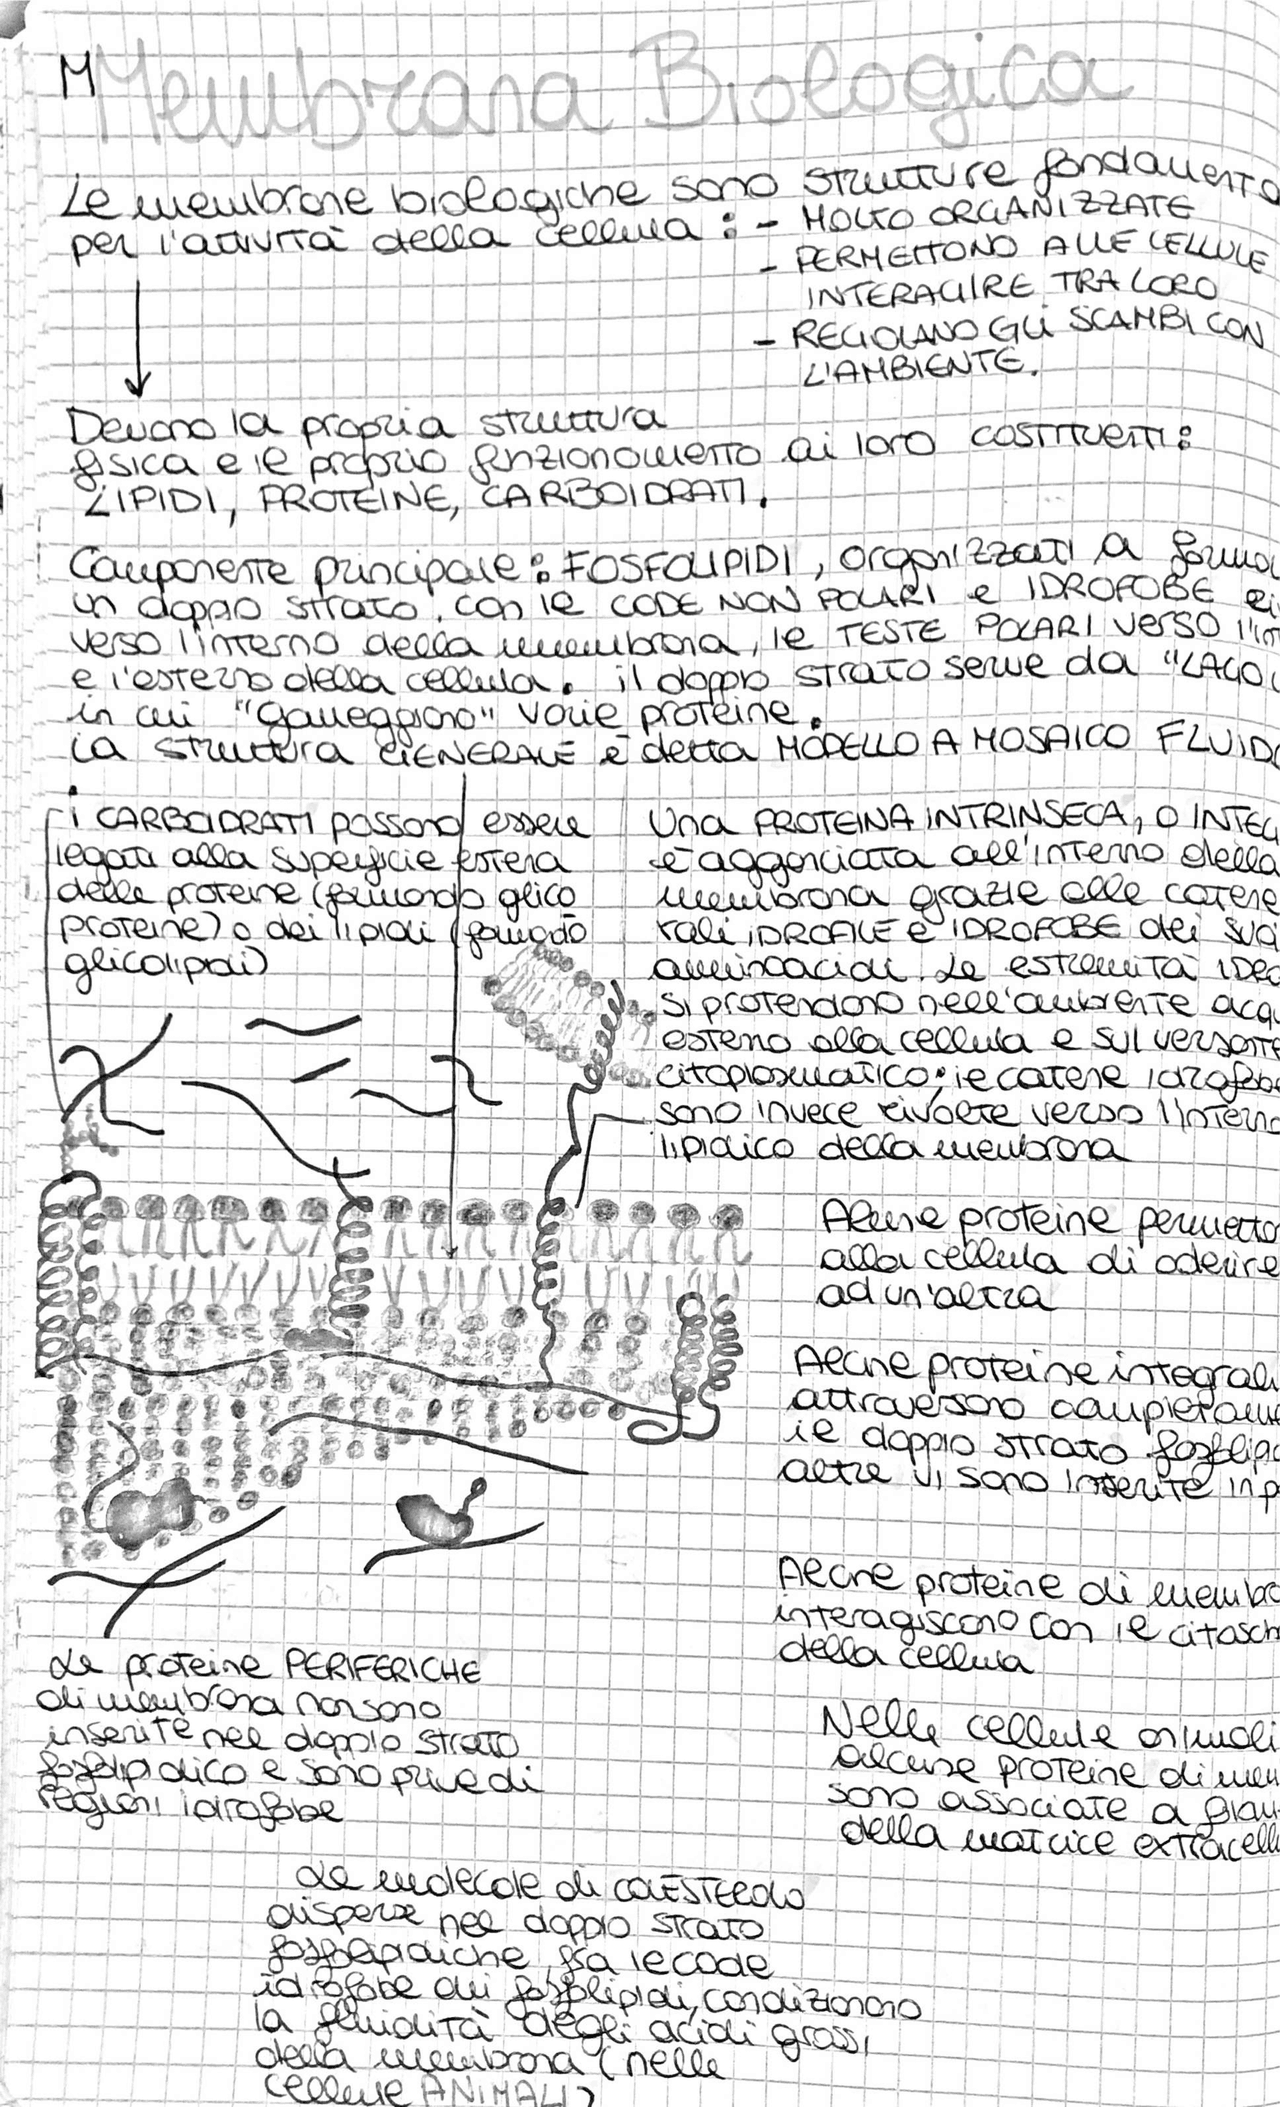 M Membrana Biologica
Le membrane biologiche sono strutture fondamenta
per l'attività della cellula : - MOLTO ORGANIZZATE
- PERMETTONO ALLE CELLULE
INTERAGIRE TRA LORO
- REGOLANO GLI SCAMBI CON
L'AMBIENTE.
Devono la propria struttura
fisica e le proprio funzionamento ai loro costituenti :
LIPIDI, PROTEINE, CARBOIDRATI.
Componente principale : FOSFOLIPIDI, organizzati a forma
un doppio strato. con le CODE NON POLARI e IDROFOBE ri
verso l'interno della membrana, le TESTE POLARI verso l'int
e l'esterno della cellula. il doppio strato serve da "LAGO
in cui "galleggiano" varie proteine.
La struttura GENERALE è detta MODELLO A MOSAICO FLUIDO
i CARBOIDRATI possono essere
legati alla superficie esterna
delle proteine (formando glico
proteine) o dei lipidi (formando
glicolipidi)
Una PROTEINA INTRINSECA, O INTEG
è agganciata all'interno della
membrana grazie alle catene
rali IDROFILE e IDROFOBE dei suoi
amminoacidi. Le estremità IDRO
si protendono nell'ambiente acqu
esterno alla cellula e sul versante
citoplasmatico; le catene idrofobe
sono invece rivolte verso l'interno
lipidico della membrana
Alcune proteine permetto
alla cellula di aderire
ad un'altra
Alcune proteine integrali
attraversano completame
il doppio strato fosfolipi
altre vi sono inserite in p
Alcune proteine di membra
interagiscono con le citosch
della cellula
Le proteine PERIFERICHE
di membrana non sono
inserite nel doppio strato
fosfolipidico e sono prive di
regioni idrofobe
Nelle cellule animali
alcune proteine di mem
sono associate a filam
della matrice extracell
Le molecole di COLESTEROLO
disperse nel doppio strato
fosfolipidiche, fra le code
idrofobe dei fosfolipidi, condizionano
la fluidità degli acidi grassi
della membrana (nelle
cellule ANIMALI)